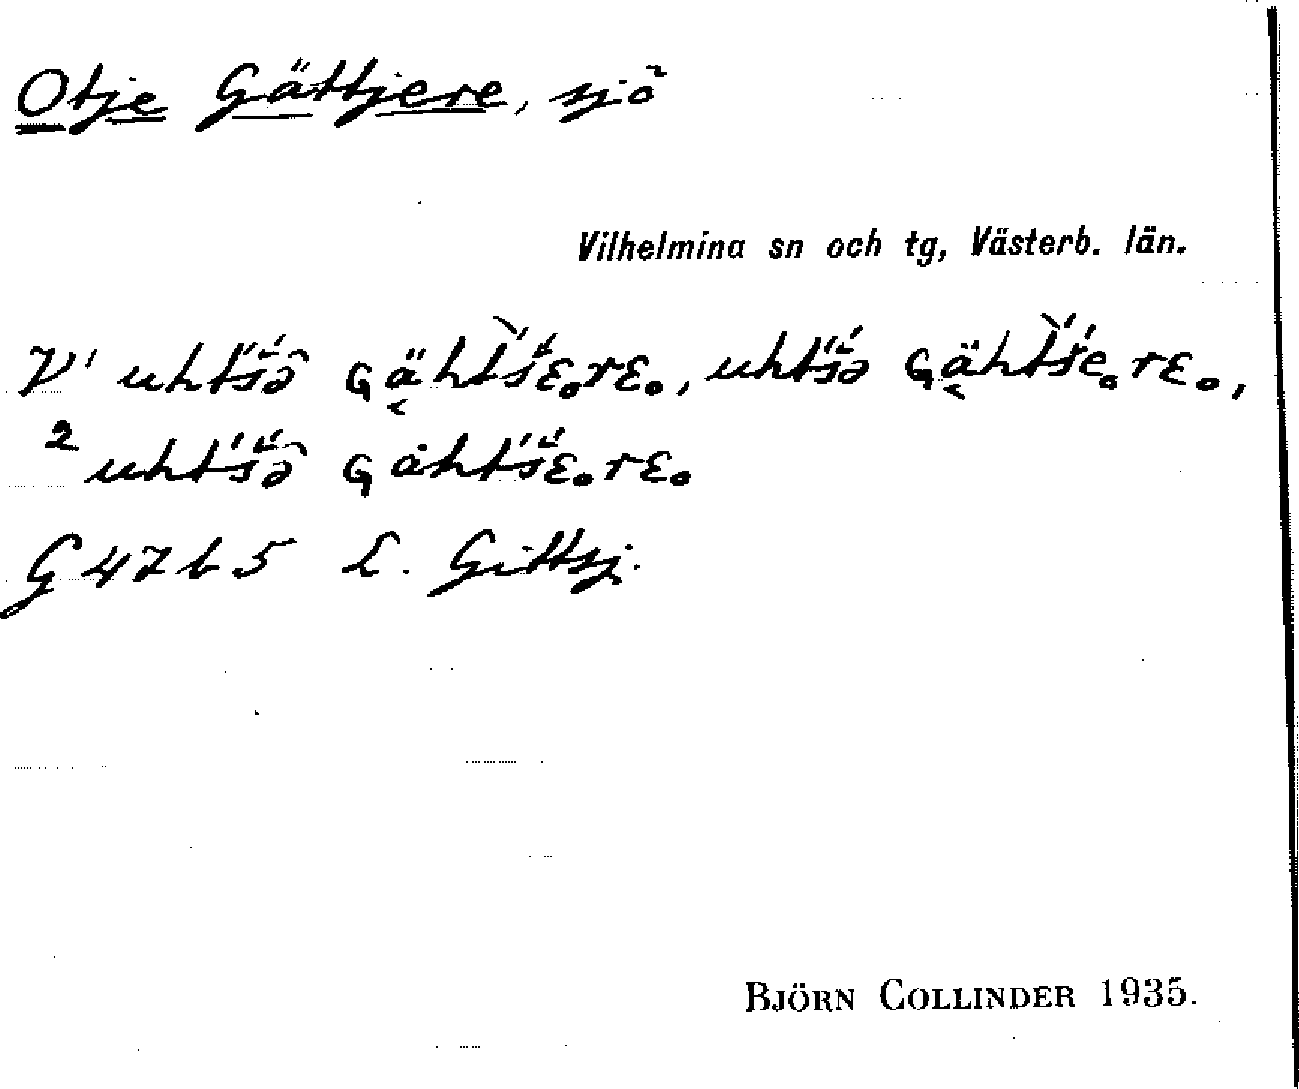 Otje Gättjere, sjö
Vilhelmina sn och tg, Västerb. län.
V¹ uht́š́ə̑ ɢä̜ht́š́ɛ̥rɛ̥, uht́š́ə ɢä̜ht́š́e̥rɛ̥,
² uht́š́ə̑ ɢȧht́š́ɛ̥rɛ̥
G 4765 L. Gittsj.
BJÖRN COLLINDER 1935.